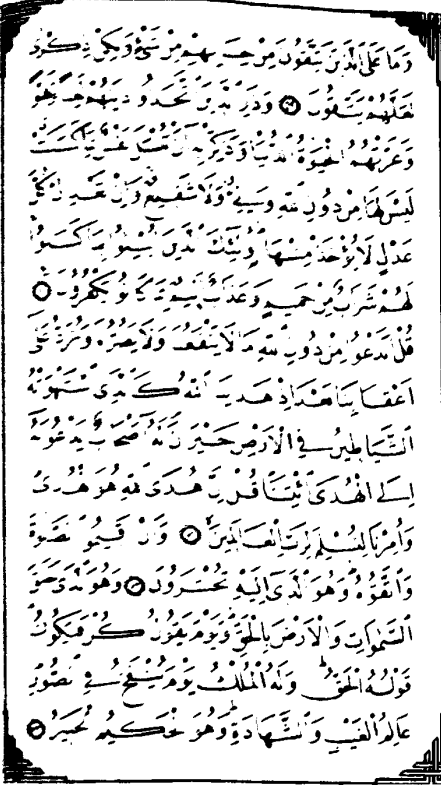 وَمَا عَلَى الَّذِينَ يَتَّقُونَ مِنْ حِسَابِهِمْ مِنْ شَيْءٍ وَلَكِنْ ذِكْرَى
لَعَلَّهُمْ يَتَّقُونَ ۝ وَذَرِ الَّذِينَ اتَّخَذُوا دِينَهُمْ لَعِبًا وَلَهْوًا
وَغَرَّتْهُمُ الْحَيَوةُ الدُّنْيَا وَذَكِّرْ بِهِ أَنْ تُبْسَلَ نَفْسٌ بِمَا كَسَبَتْ
لَيْسَ لَهَا مِنْ دُونِ اللَّهِ وَلِيٌّ وَلَا شَفِيعٌ وَإِنْ تَعْدِلْ كُلَّ
عَدْلٍ لَا يُؤْخَذْ مِنْهَا أُولَئِكَ الَّذِينَ أُبْسِلُوا بِمَا كَسَبُوا
لَهُمْ شَرَابٌ مِنْ حَمِيمٍ وَعَذَابٌ أَلِيمٌ بِمَا كَانُوا يَكْفُرُونَ ۝
قُلْ أَنَدْعُوا مِنْ دُونِ اللَّهِ مَا لَا يَنْفَعُنَا وَلَا يَضُرُّنَا وَنُرَدُّ عَلَى
أَعْقَابِنَا بَعْدَ إِذْ هَدَينَا اللَّهُ كَالَّذِي اسْتَهْوَتْهُ
الشَّيَاطِينُ فِي الْأَرْضِ حَيْرَانَ لَهُ أَصْحَابٌ يَدْعُونَهُ
إِلَى الْهُدَى ائْتِنَا قُلْ إِنَّ هُدَى اللَّهِ هُوَ الْهُدَى
وَأُمِرْنَا لِنُسْلِمَ لِرَبِّ الْعَالَمِينَ ۝ وَأَنْ أَقِيمُوا الصَّلَوةَ
وَاتَّقُوهُ وَهُوَ الَّذِي إِلَيْهِ تُحْشَرُونَ ۝ وَهُوَ الَّذِي خَلَقَ
السَّمَوَاتِ وَالْأَرْضَ بِالْحَقِّ وَيَوْمَ يَقُولُ كُنْ فَيَكُونُ
قَوْلُهُ الْحَقُّ وَلَهُ الْمُلْكُ يَوْمَ يُنْفَخُ فِي الصُّورِ
عَالِمُ الْغَيْبِ وَالشَّهَادَةِ وَهُوَ الْحَكِيمُ الْخَبِيرُ ۝